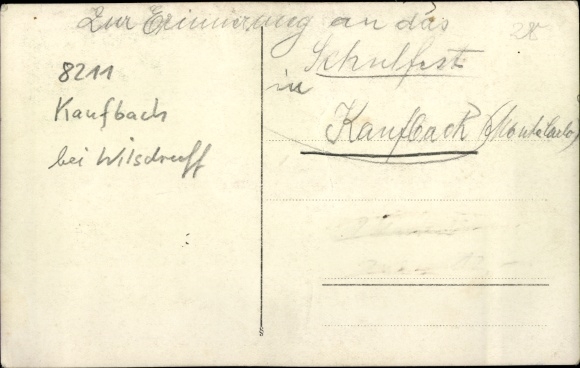 Zur Erinnerung an das
Schulfest
in
Kaufbach (Montelarlo)
28
8211
Kaufbach
bei Wilsdruff